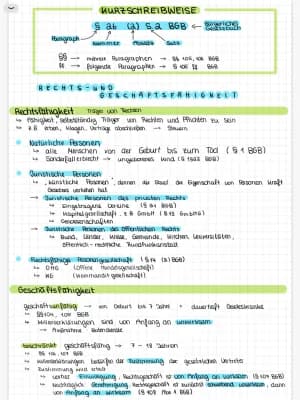 KURZSCHREIBWEISE
§ 26 (2) S.2 BGB
Bürgerliches
Gesetzbuch
Paragraph
Nummer
Absatz
Satz
§§ → mehrere Paragraphen → §§ 104, 105 BGB
ff → folgende Paragraphen → § 105 ff BGB
RECHTS- UND
GESCHÄFTSFÄHIGKEIT
Rechtsfähigkeit Träger von Rechten
↳ Fähigkeit, selbstständig Träger von Rechten und Pflichten zu sein
↳ z.B. erben, klagen, Verträge abschließen → Steuern
Natürliche Personen
↳ alle Menschen von der Geburt bis zum Tod (§ 1 BGB)
↳ Sonderfall erbrecht → ungeborenes Kind (§ 1923 BGB)
Juristische Personen
↳ "künstliche Personen", denen der Staat die Eigenschaft von Personen kraft
Gesetzes verliehen hat
→ Juristische Personen des privaten Rechts
↳ Eingetragene Vereine (§ 21 BGB)
↳ Kapitalgesellschaft, z.B. GmbH (§ 13 GmbHG)
↳ Genossenschaften
→ Juristische Personen des öffentlichen Rechts
↳ Bund, Länder, Kreise, Gemeinde, Kirchen, Universitäten,
öffentlich-rechtliche Rundfunkanstalt
Rechtsfähige Personengesellschaft (§ 14 (2) BGB)
↳ OHG (offene Handelsgesellschaft)
↳ KG (Kommanditgesellschaft)
Geschäftsfähigkeit
geschäftsunfähig → von Geburt bis 7 Jahre + dauerhaft Geisteskranke
↳ §§ 104, 105 BGB
↳ Willenserklärungen sind von Anfang an unwirksam
↳ Ausnahme: Botendienste
beschränkt geschäftsfähig → 7 - 18 Jahren
↳ §§ 106, 107 BGB
↳ Willenserklärungen bedürfen der Zustimmung der gesetzlichen Vertreter
↳ Zustimmung wird erteilt
↳ vorher: Einwilligung, Rechtsgeschäft ist von Anfang an wirksam (§ 107 BGB)
↳ nachträglich: Genehmigung, Rechtsgeschäft ist zunächst schwebend unwirksam, dann
von Anfang an wirksam (§ 108 Abs 1 BGB)